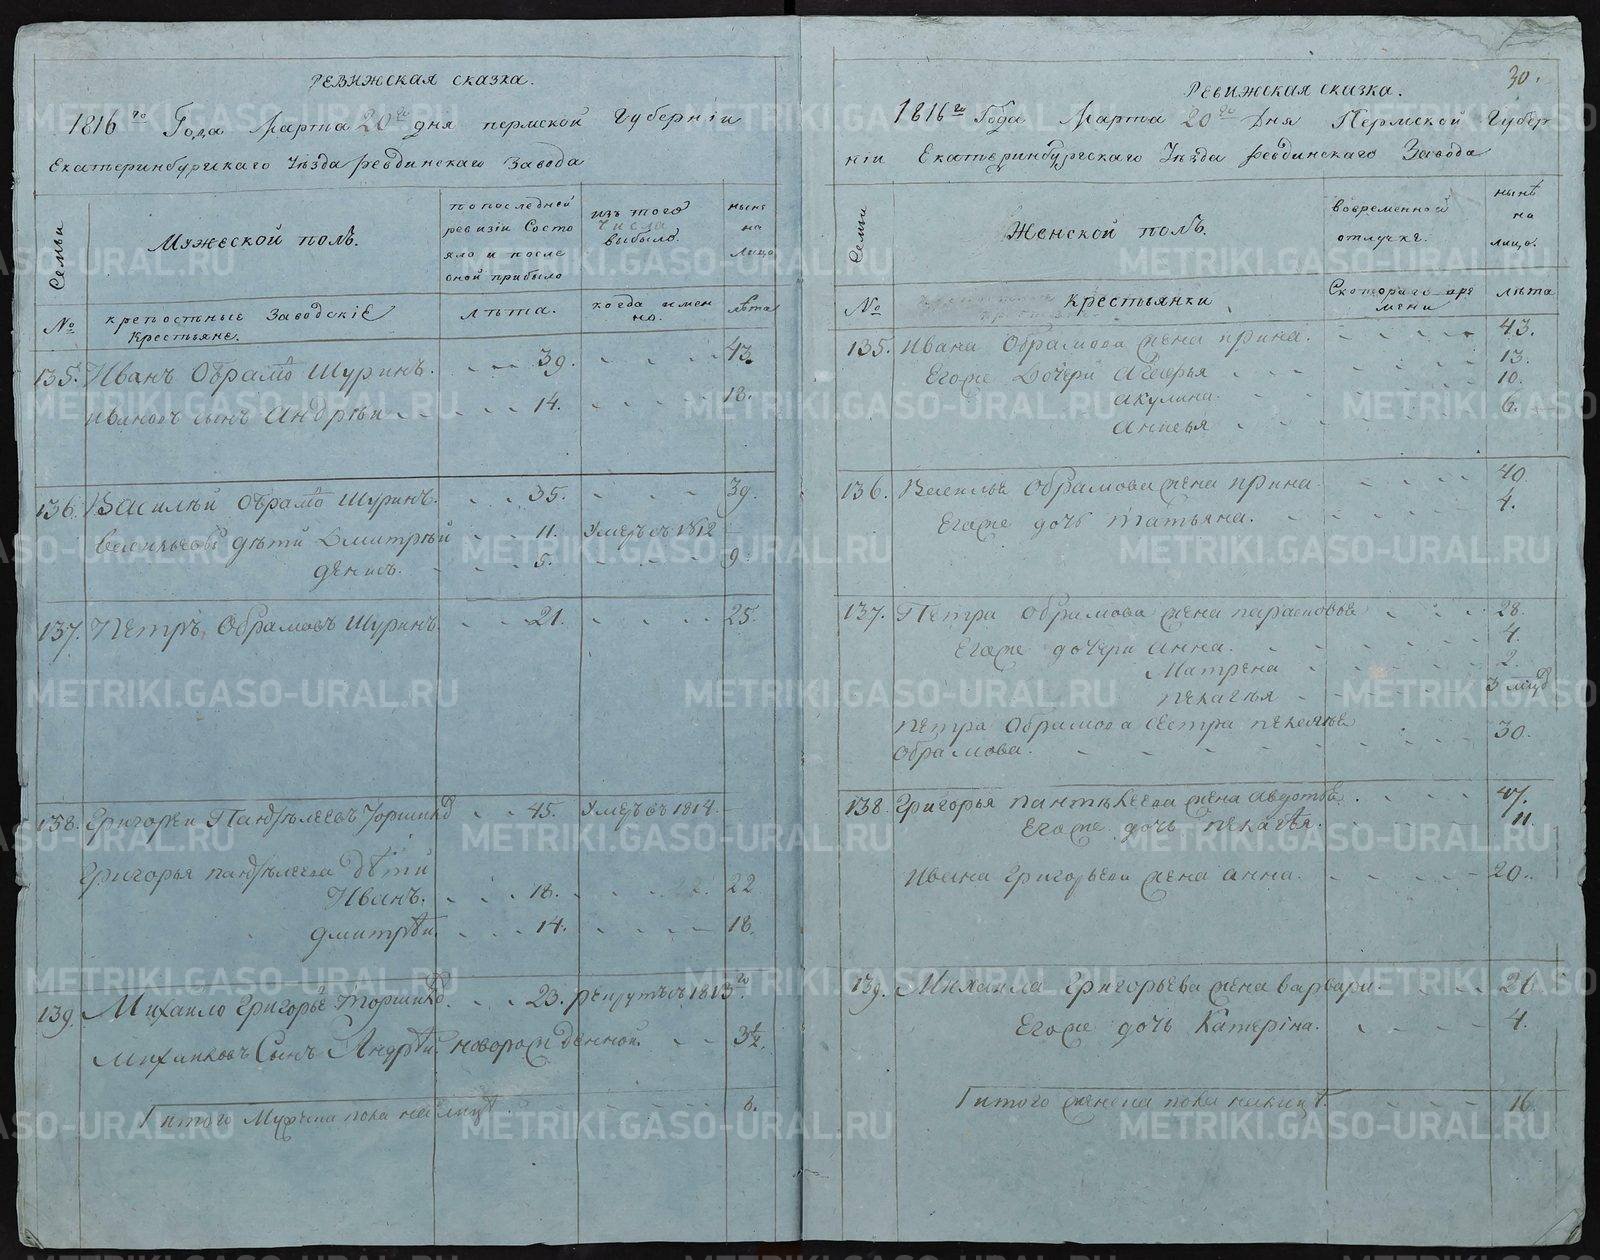 Ревижская сказка.
1816го Года Марта 20го дня пермской Губерніи
Екатеринбургскаго Уѣзда ревдинскаго Завода
Семьи
Мужеской полъ.
по последней ревизіи Состояло и после оной прибыло
изъ того Числа выбыло.
ныне на лицо
№
крепостные Заводскіе Крестьяне.
лѣта.
когда имянно.
лѣта
135. Иванъ Обрамо Шуринъ. 39. 43.
Ивановъ сынъ Андрѣи 14. 18.
136. Василѣй Обрамо Шуринъ. 35. 39.
Васильевы дѣти Дмитрѣй 11. Умеръ въ 1812
денисъ. 5. 9.
137. Петръ Обрамовъ Шуринъ. 21. 25.
138. Григореи Панфѣлеевъ 45. Умеръ въ 1814.
Григорья панфѣлеева Дѣти
Иванъ. 18. 22
дмитрѣи. 14. 18.
139. Михаило Григорье 23. рекрутъ въ 1813го
Михаиловъ Сынъ Андрѣи. новорожденной. 3½.
итого Мужеска пола на лицѣ 8.
30.
Ревижская сказка.
1816го Года Марта 20го Дня Пермской Губер
ніи Екатеринбургскаго Уѣзда ревдинскаго Завода
Семьи
Женской полъ.
вовременной отлучке.
нынѣ на лицо.
№
Крестьянки
Скотораго времени
лѣта
135. Ивана Обрамова жена ирина. 43.
Егоже Дочери 13.
акулина. 10.
6.
136. Василья Обрамова жена ирина. 40.
Егоже дочь татьяна. 4.
137. Петра Обрамова жена парасковья 28.
Егоже дочери анна. 4.
Матрена 2.
пекалья 3 меся
Петра Обрамова сестра
Обрамова. 30.
138. Григорья жена 47.
Егоже дочь 11.
Ивана григорьева жена анна. 20.
139. Михаила григорьева жена варвара. 26
Егоже дочь Катеріна. 4.
итого женска пола налицѣ 16
METRIKI.GASO-URAL.RU